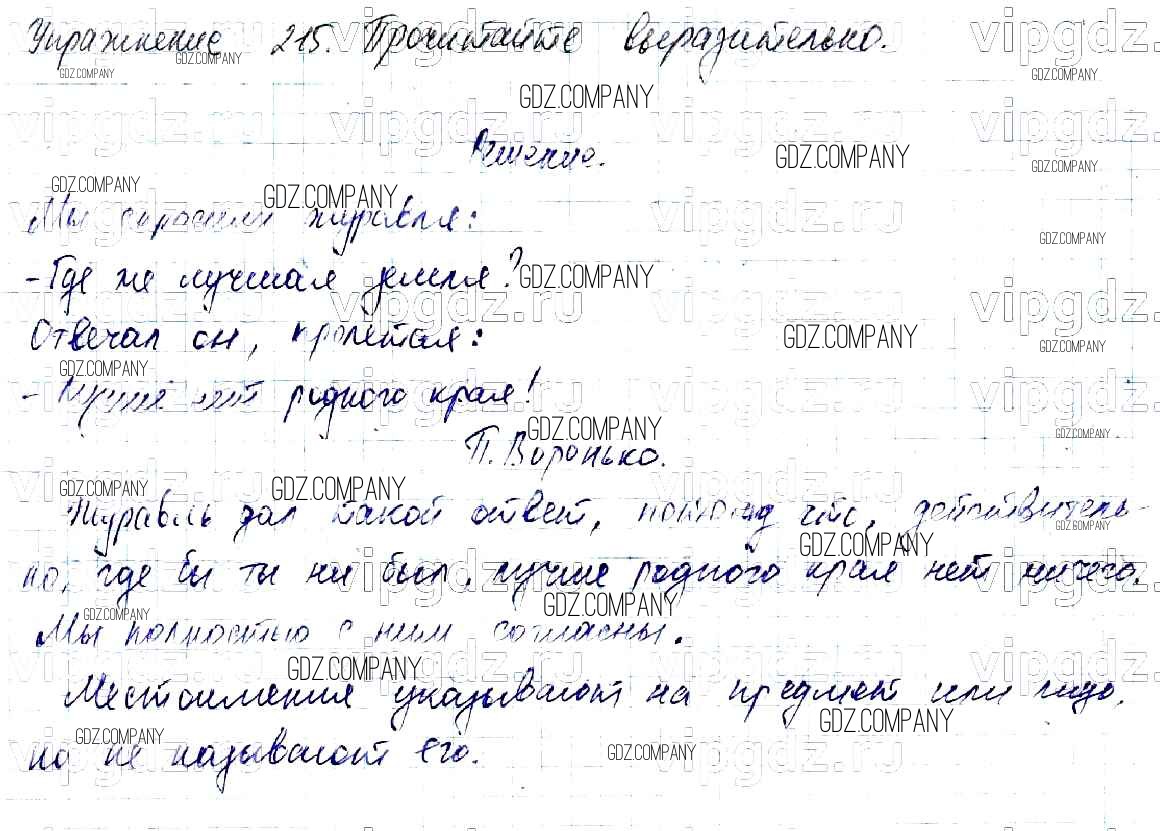 Упражнение 215. Прочитайте выразительно.
Решение.
Мы спросили журавля:
- Где же лучшая земля?
Отвечал он, пролетая:
- Лучше нет родного края!
П. Воронько.
Журавль дал такой ответ, потому что, действитель-
но, где бы ты ни был, лучше родного края нет ничего.
Мы полностью с ним согласны.
Местоимения указывают на предмет или лицо,
но не называют его.